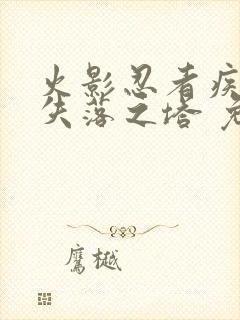 火影忍者疾
失落之塔
鹰樾